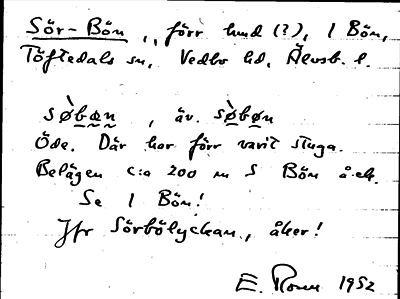 Sör-Bön, förr lund (?), 1 Bön,
Töftedals sn, Vedbo hd, Älvsb. l.
sø̀bøn, äv. sø̀bøn
Öde. Där har förr varit stuga.
Belägen c:a 200 m S Bön å.ek.
Se 1 Bön!
Jfr Sörbölyckan, åker!
E. 1952